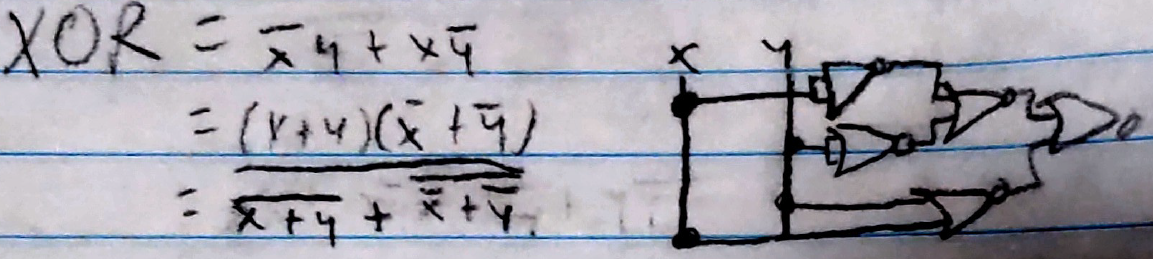 XOR = x̅y + xy̅
= (x+y)(x̅+y̅)
= \overline{\overline{x+y} + \overline{x̅+y̅}}
x y